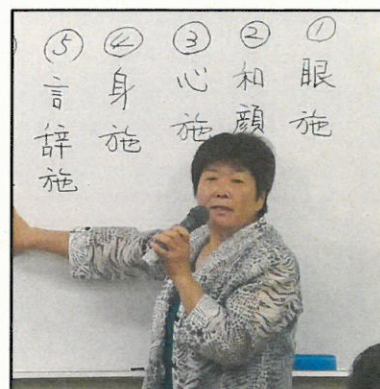 ① 眼施
② 和顔
③ 心施
④ 身施
⑤ 言辞施